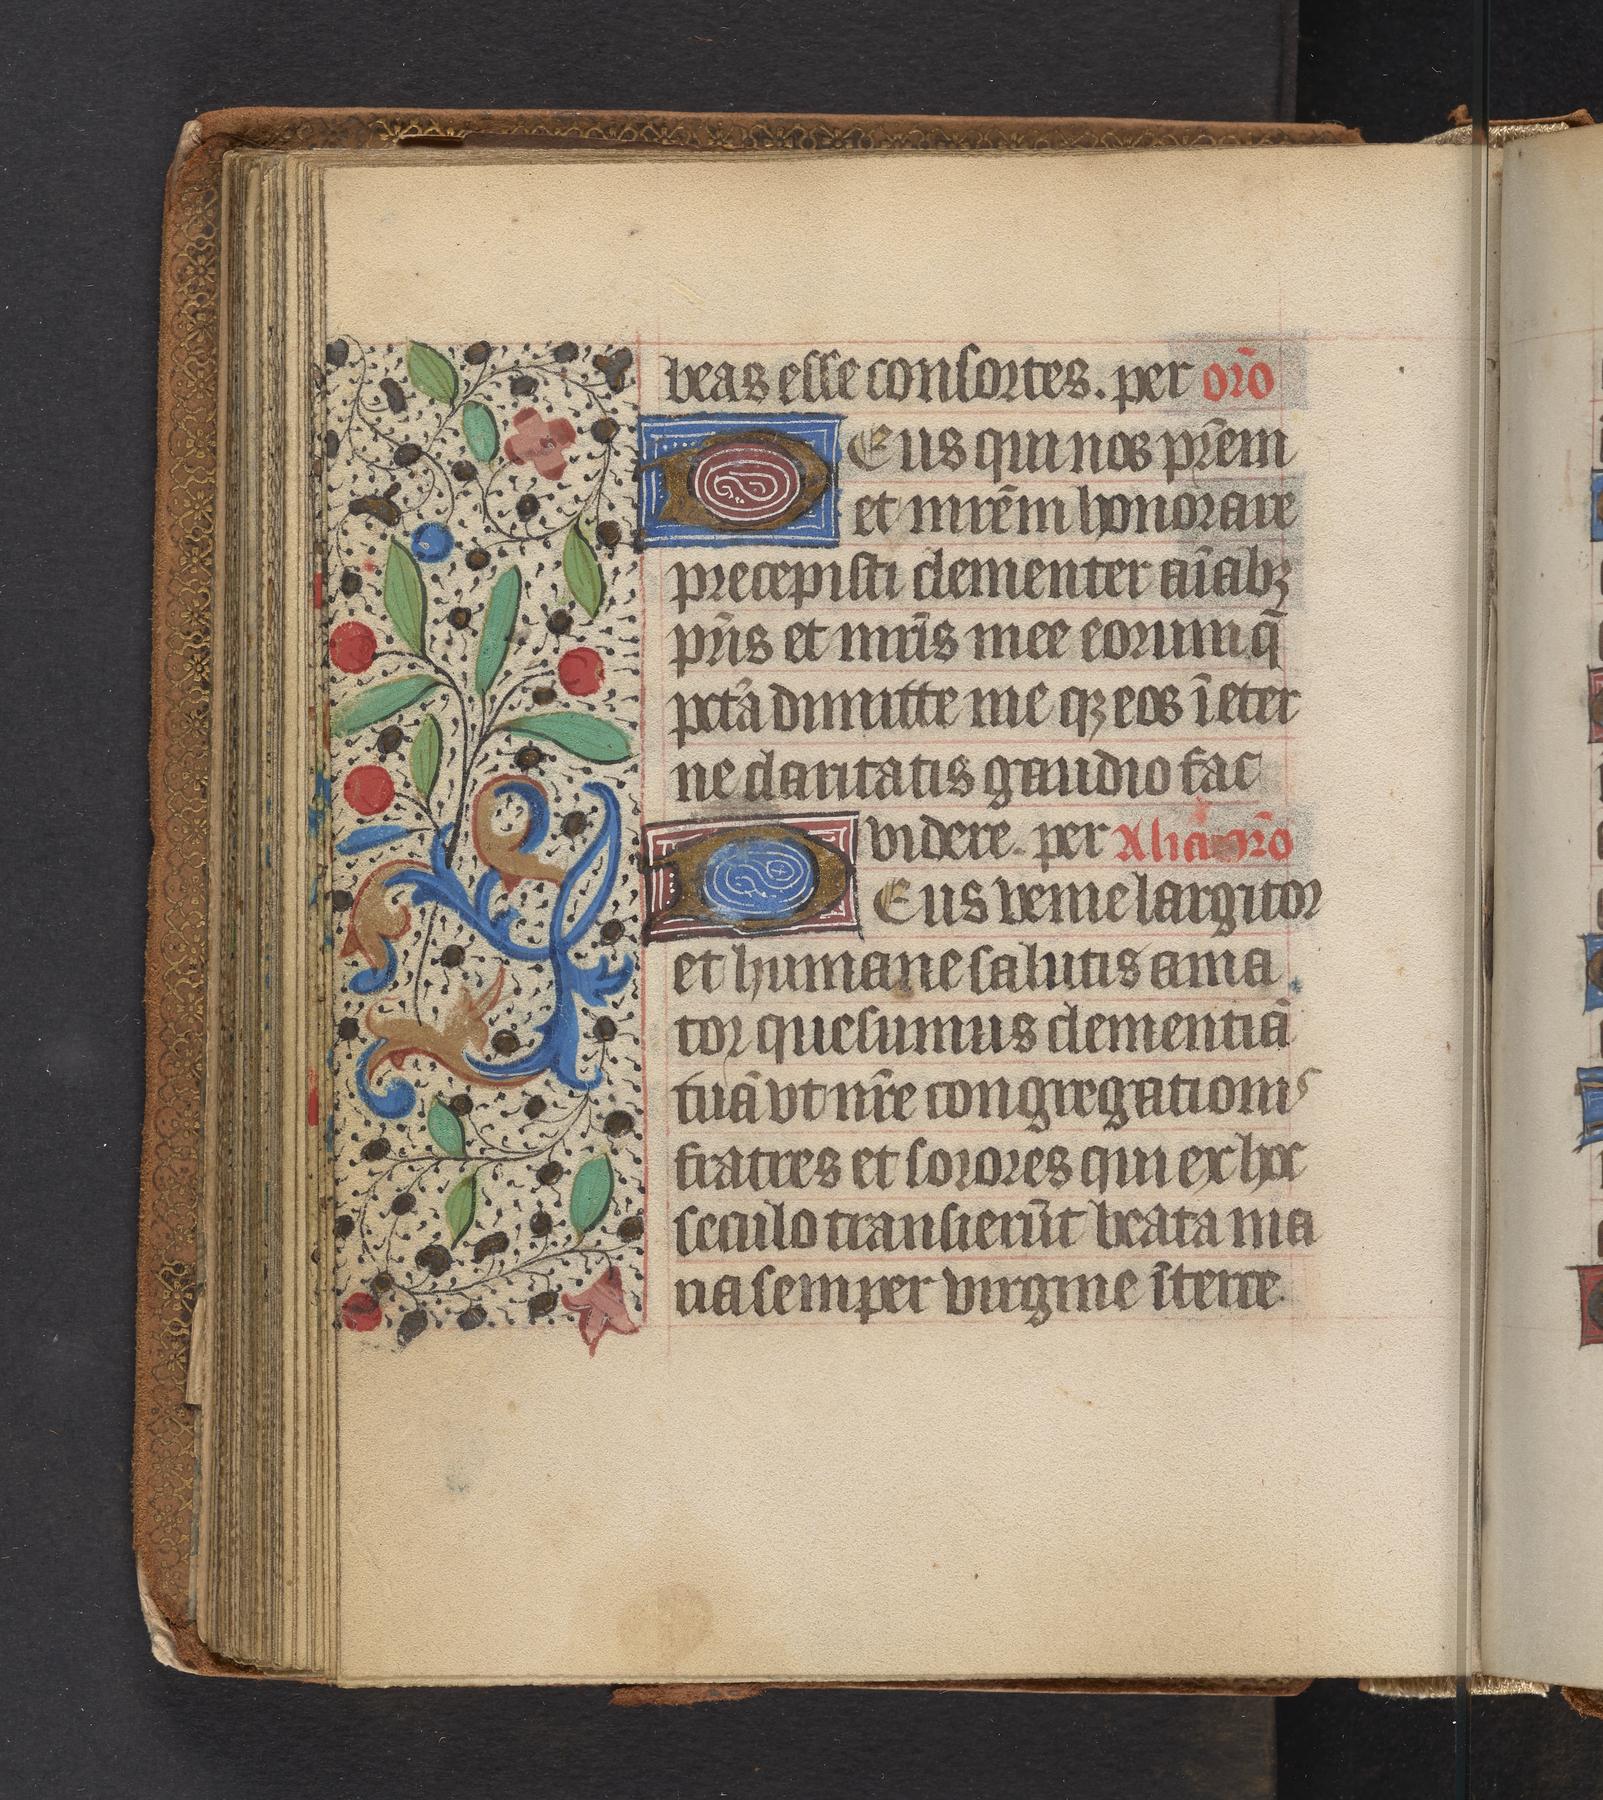 beas esse consortes. per orō
DEus qui nos pr̄em
et mr̄em honorare
precepisti clementer aīabꝫ
pr̄is et mr̄is mee eorumq̄
pctā dimitte me qꝫ eos ī eter
ne claritatis gaudio fac
videre. per Alia orō
DEus venie largitor
et humane salutis ama
tor quesumus clementiā
tuā vt nr̄e congregationis
fratres et sorores qui ex hoc
seculo transierūt beata ma
ria semper virgine īterce